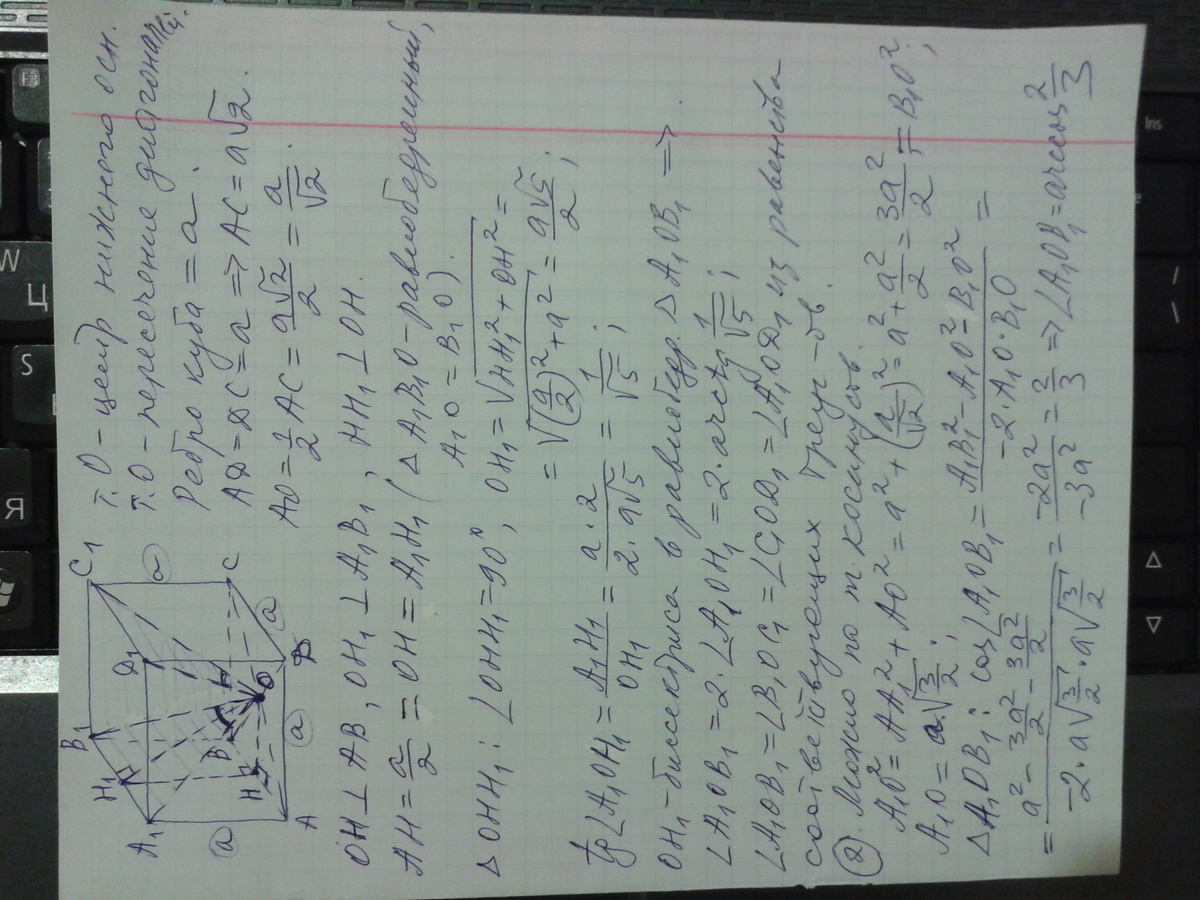 т. О - центр нижнего осн.
т. О - пересечение диагоналей.
Ребро куба = a.
АД = ДС = a => АС = a√2.
АО = 1/2 АС = a√2/2 = a/√2
A₁ B₁ C₁ Д₁ H₁
A B C Д H O
a a a a
OH ⊥ AB, OH₁ ⊥ A₁B₁, HH₁ ⊥ OH.
AH = a/2 = OH = A₁H₁ (△ A₁B₁O - равнобедренный,
A₁O = B₁O).
△ OHH₁: ∠OHH₁ = 90°, OH₁ = √(HH₁² + OH²) =
= √((a/2)² + a²) = a√5/2;
tg∠A₁OH₁ = A₁H₁/OH₁ = a·2/2·a√5 = 1/√5;
OH₁ - биссектриса в равнобедр. △ A₁OB₁ =>
∠A₁OB₁ = 2·∠A₁OH₁ = 2·arctg 1/√5;
∠A₁OB₁ = ∠B₁OC₁ = ∠C₁OД₁ = ∠A₁OД₁ из равенства
соответствующих треуг-ов.
(2). Можно по т. косинусов.
A₁O² = AA₁² + AO² = a² + (a/√2)² = a² + a²/2 = 3a²/2 = B₁O²;
A₁O = a·√(3/2);
△ A₁OB₁: cos∠A₁OB₁ = A₁B₁² - A₁O² - B₁O²/-2·A₁O·B₁O =
= a² - 3a²/2 - 3a²/2/-2·a√(3/2)·a√(3/2) = -2a²/-3a² = 2/3 => ∠A₁OB₁ = arccos 2/3
F3
W
Ц
S
Я
Ins